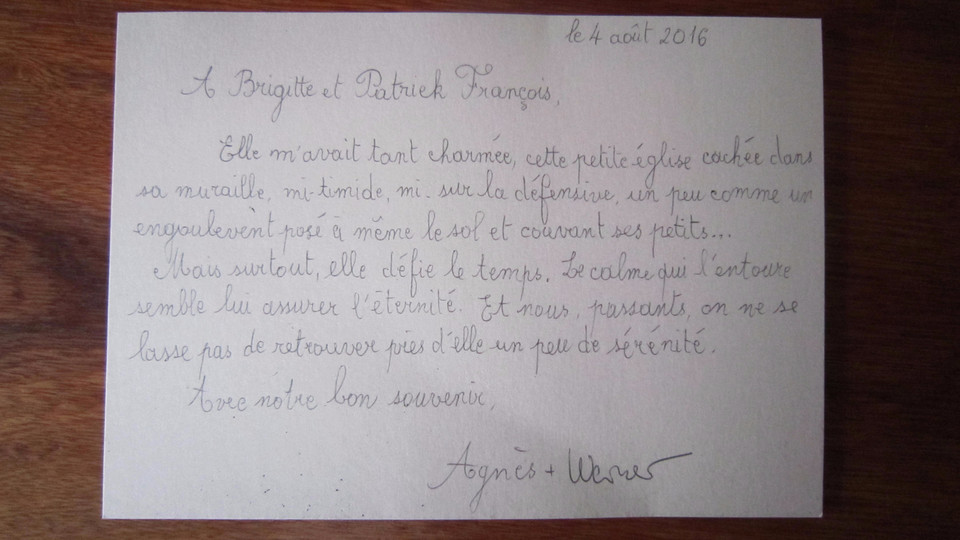 le 4 août 2016
A Brigitte et Patrick François,
Elle m'avait tant charmée, cette petite église cachée dans
sa muraille, mi-timide, mi-sur la défensive, un peu comme un
engoulevent posé à même le sol et couvant ses petits...
Mais surtout, elle défie le temps. Le calme qui l'entoure
semble lui assurer l'éternité. Et nous, passants, on ne se
lasse pas de retrouver près d'elle un peu de sérénité.
Avec notre bon souvenir,
Agnès + Werner